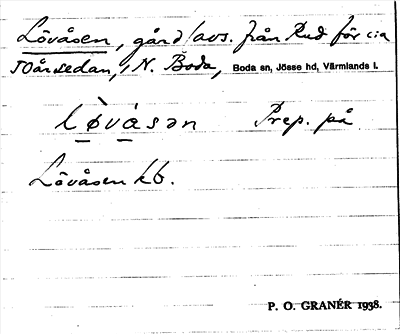 Lövåsen, gård (avs. från Rud för c:a
50 år sedan, i N. Boda, Boda sn, Jösse hd, Värmlands l.
lø̀våsən Prep. på
Lövåsen kb.
P. O. GRANÉR 1938.